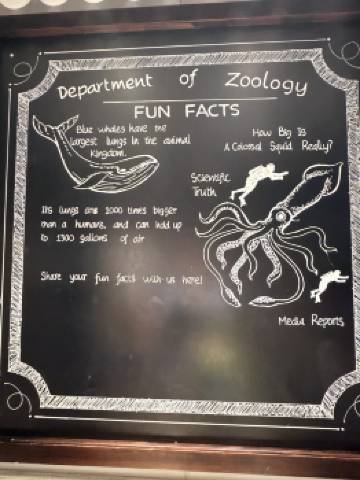 Department of Zoology
FUN FACTS
Blue whales have the
largest lungs in the animal
kingdom.
Its lungs are 1000 times bigger
than a humans, and can hold up
to 1300 gallons of air
Share your fun facts with us here!
How Big Is
A Colossal Squid Really?
Scientific
Truth
Media Reports